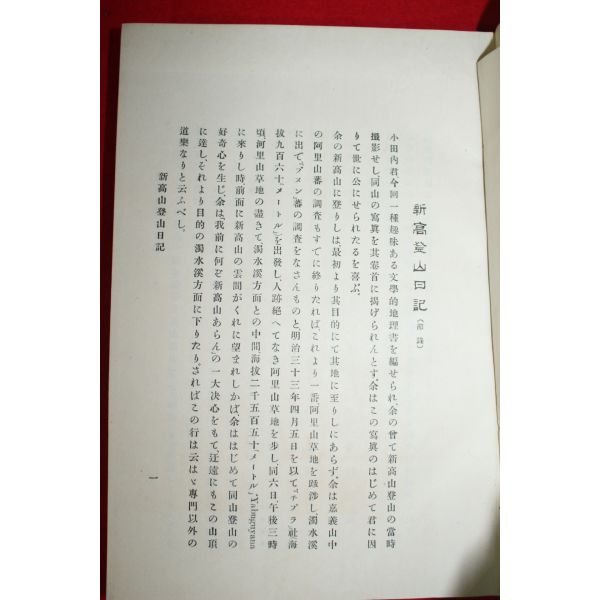 新高登山日記(附錄)
小田內君今回一種趣味ある文學的地理書を編せられ、余の曾て新高山登山の當時
撮影せし、同山の寫眞を其卷首に揭げられんとす、余はこの寫眞のはじめて君に因
りて世に公にせられたるを喜ぶ。
余の新高山に登りしは、最初より其目的にて其地に至りしにあらず。余は嘉義山中
の阿里山蕃の調査もすでに終りたれば、これより一番阿里山草地を跋涉し、濁水溪
に出で、『ブヌン』蕃の調査をなさんものと、明治三十三年四月五日を以て、『チブラ』社海
拔九百六十『メートル』を出發し、人跡絕へてなき阿里山草地を步し、同六日、午後三時
頃、河里山草地の盡きて濁水溪方面との中間海拔二千五百五十『メートル』
に來りし時、前面に新高山の雲間がくれに望まれしかば、余ははじめて同山登山の
好奇心を生じ、余は、我前に何ぞ新高山あらんの一大決心をもて、迂遠にもこの山頂
に達し、それより目的の濁水溪方面に下りたり。さればこの行は云はゞ專門以外の
道樂なりと云ふべし。
新高山登山日記
一